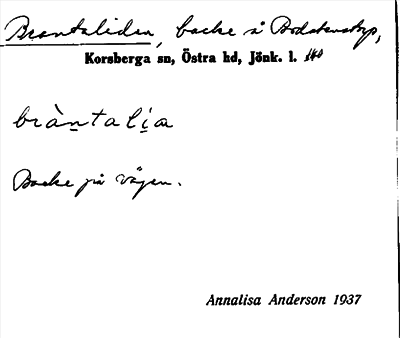 Brantaliden, backe å Bodatanstorp,
Korsberga sn, Östra hd, Jönk. l.
bràntalịa
Backe på vägen.
Annalisa Anderson 1937